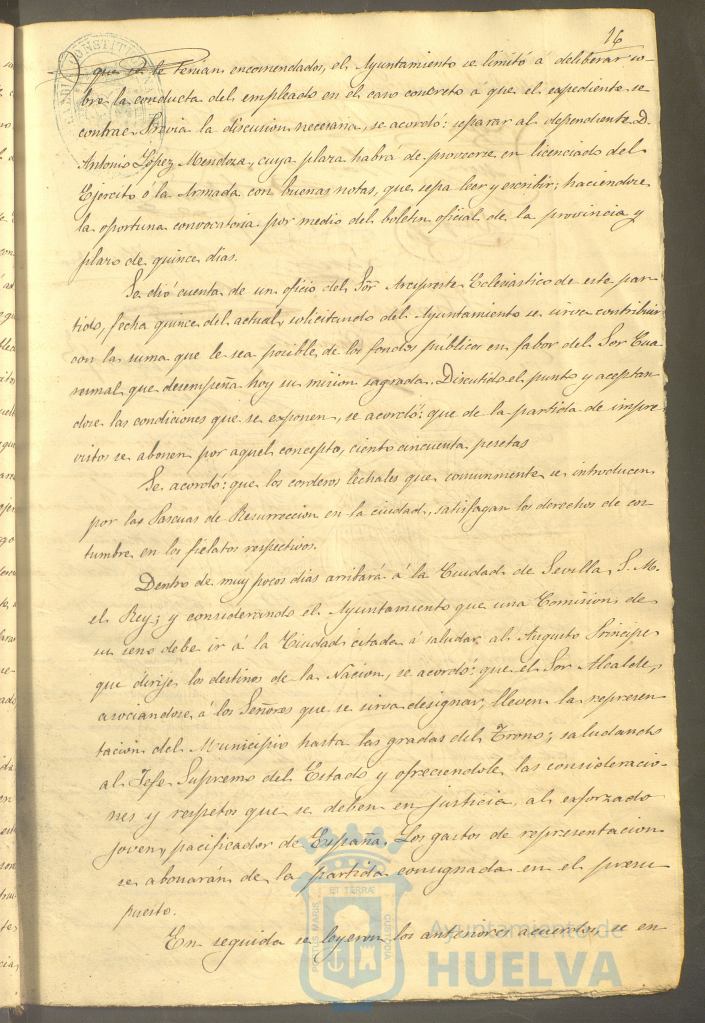 16
que se le tenian encomendados, el Ayuntamiento se limitó á deliberar so-
bre la conducta del empleado en el caso concreto á que el espediente se
contrae. Previa la discusion necesaria, se acordó: separar al dependiente D.
Antonio López Mendoza, cuya plaza habrá de proveerse en licenciado del
Ejercito ó la Armada con buenas notas, que sepa leer y escribir; haciendose
la oportuna convocatoria por medio del boletin oficial de la provincia y
plazo de quince dias.
Se dió cuenta de un oficio del Sor Arcipreste Eclesiástico de este par-
tido, fecha quince del actual, solicitando del Ayuntamiento se sirva contribuir
con la suma que le sea posible de los fondos públicos en fabor del Sor Cua
resmal que desempeña hoy su mision sagrada. Discutido el punto y aceptan
dose las condiciones que se exponen, se acordó: que de la partida de impre-
vistos se abonen por aquel concepto, ciento cincuenta pesetas
Se acordó: que los corderos lechales que comunmente se introducen
por las Pascuas de Resurreccion en la ciudad, satisfagan los derechos de cos-
tumbre en los fielatos respectivos.
Dentro de muy pocos dias arribará á la Ciudad de Sevilla, S. M.
el Rey; y considerando el Ayuntamiento que una Comision de
su seno debe ir á la Ciudad citada á saludar al Augusto Principe
que dirije los destinos de la Nacion, se acordó: que el Sor Alcalde,
asociandose á los Señores que se sirva designar, lleven la represen
tacion del Municipio hasta las gradas del Trono; saludando
al Jefe Supremo del Estado y ofreciendole las consideracio-
nes y respetos que se deben en justicia al esforzado
joven, pacificador de España. Los gastos de representacion
se abonarán de la partida consignada en el presu
puesto.
En seguida se leyeron los anteriores acuerdos, se en
PORTUS MARIS ET TERRÆ CUSTODIA
Ayuntamiento de
HUELVA